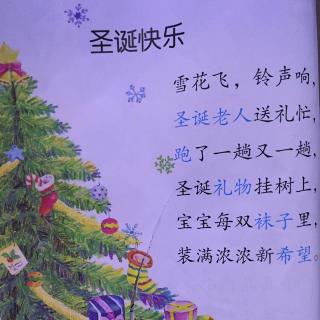 圣诞快乐
雪花飞，铃声响，
圣诞老人送礼忙，
跑了一趟又一趟，
圣诞礼物挂树上，
宝宝每双袜子里，
装满浓浓新希望。